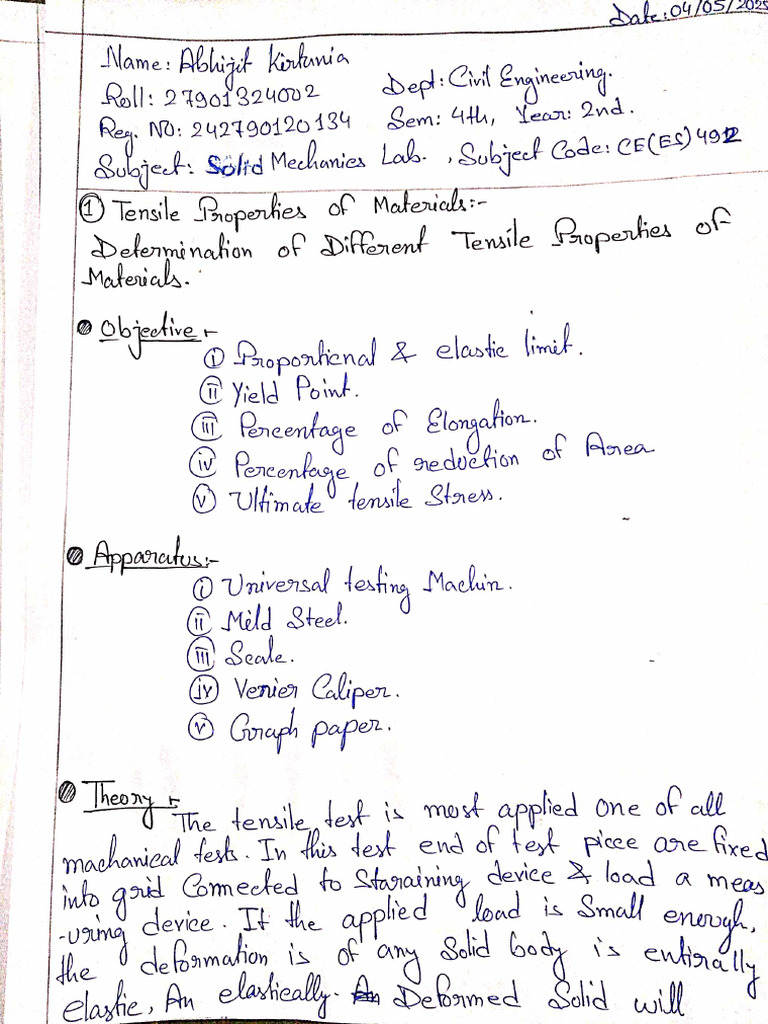 Date: 04/05/2025
Name: Abhijit Kirtunia
Roll: 27901324002 Dept: Civil Engineering.
Reg. NO: 242790120134 Sem: 4th, Year: 2nd.
Subject: Solid Mechanics Lab. , Subject Code: CE(ES)492
① Tensile Properties of Materials:-
Determination of Different Tensile Properties of
Materials.
Objective :-
ⓘ Proportional & elastic limit.
ⅱ Yield Point.
ⅲ Percentage of Elongation.
ⅳ Percentage of reduction of Area
ⅴ Ultimate tensile Stress.
Apparatus:-
ⓘ Universal testing Machin.
ⅱ Mild Steel.
ⅲ Scale.
ⅳ Venier Caliper.
ⅴ Graph paper.
Theory :-
The tensile test is most applied one of all
machanical tests. In this test end of test piece are fixed
into grid Connected to Staraining device & load a meas
-uring device. If the applied load is Small enough,
the deformation is of any Solid body is entirally
elastic, An elastically. Deformed Solid will